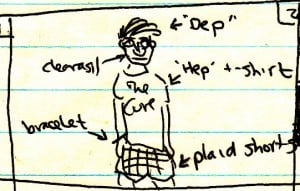 2
"Dep"
clearasil
"Hep" t-shirt
The
Cure
bracelet
plaid shorts